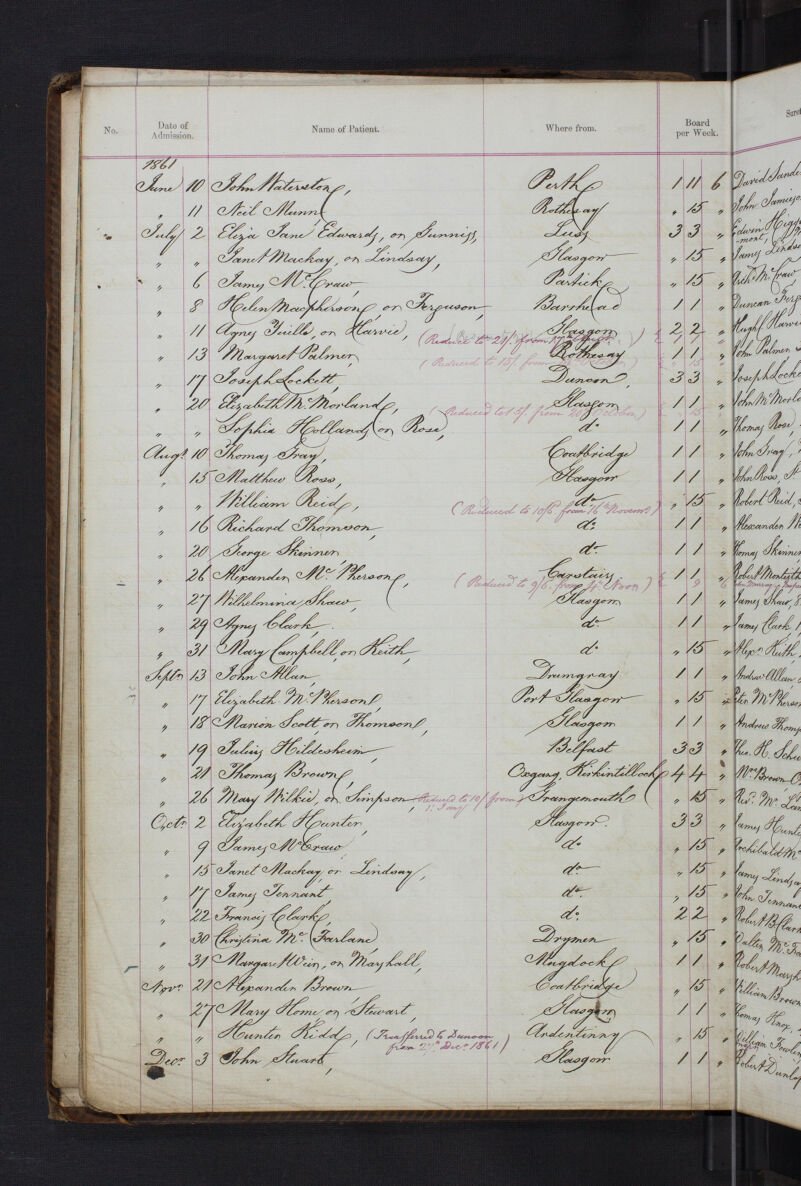 No. Date of Admission. Name of Patient. Where from. Board per Week.
1861
June 10 John Waterston, Perth 1 11 6 David Sande
" 11 Neil Munn Rothesay " 15 " John Jamieso
July 2 Eliza Jane Edwards, or Gunniss, Luss 3 3 " Edwin Higg
" " Janet Mackay, or Lindsay, Glasgow " 15 " James Lindsa
" 6 James McCraw, Partick " 15 " Archd McCraw
" 8 Helen Macpherson, or Ferguson, Barrhead 1 1 " Duncan Ferg
" 11 Agnes Yuille, or Harvie, Glasgow 2 2 " Hugh Harvie
(Reduced to 21/. from 17th )
" 13 Margaret Palmer, Rothesay 1 1 " John Palmer
(Reduced to 15/. from )
" 17 Joseph Lockett, Dunoon, 3 3 " Joseph Locke
" 20 Elizabeth McMorland, Glasgow 1 1 " John McMorla
(Reduced to 15/. from 20th October) " 15
" " Sophia Holland, or Rose, do 1 1 " Thomas Rose,
Augt 10 Thomas Gray, Coatbridge 1 1 " John Gray,
" 15 Matthew Ross, Glasgow 1 1 " John Ross,
" " William Reid, do " 15 " Robert Reid,
(Reduced to 10/6. from 16th Novem)
" 16 Richard Thomson, do 1 1 " Alexander
" 20 George Skinner do 1 1 " Thomas Skinner
" 26 Alexander McPherson, Carstairs 1 1 " Robert Monteith
(Reduced to 9/6. from 4th Novr) " 9 6
" 27 Wilhelmina Shaw, Glasgow 1 1 " James Shaw,
" 29 Agnes Clark, do 1 1 " James Clark,
" 31 Mary Campbell, or Keith, do " 15 " Alexr Keith,
Septr 13 John Allan, Drumgray 1 1 " Andrew Allan
" 17 Elizabeth McPherson, Port Glasgow " 15 " Peter McPherson
" 18 Marion Scott, or Thomson, Glasgow 1 1 " Andrew Thomp
" 19 Julius Hildesheim, Belfast 3 3 " Theo. H. Schu
" 21 Thomas Brown, Oxgang, Kirkintilloch 4 4 " Mrs Brown
" 26 Mary Wilkie, or Simpson, Reduced to 10/ from 1. Jany Grangemouth " 15 " Revd Mr. Law
Octr 2 Elizabeth Hunter, Glasgow. 3 3 " James Hunte
" 9 James McCraw, do " 15 " Archibald Mc
" 15 Janet Mackay, or Lindsay, do " 15 " James Lindsay
" 17 James Tennant, do. " 15 " John Tennant
" 22 Francis Clark, do 2 2 " Robert B Clark
" 30 Christina McFarlane Drymen " 15 " Walter McFa
" 31 Margaret Weir, or Marshall, Mugdock 1 1 " Robert Marsh
Novr 21 Alexander Brown Coatbridge " 15 " William Brown
" 27 Mary Home or Stewart, Glasgow 1 1 " Thomas Knox,
" " Hunter Kidd, (Transferred to Dunoon Ardentinny " 15 " William Fowler
from Decr 1861)
Decr 3 John Stuart, Glasgow 1 1 " Robert Dunlop